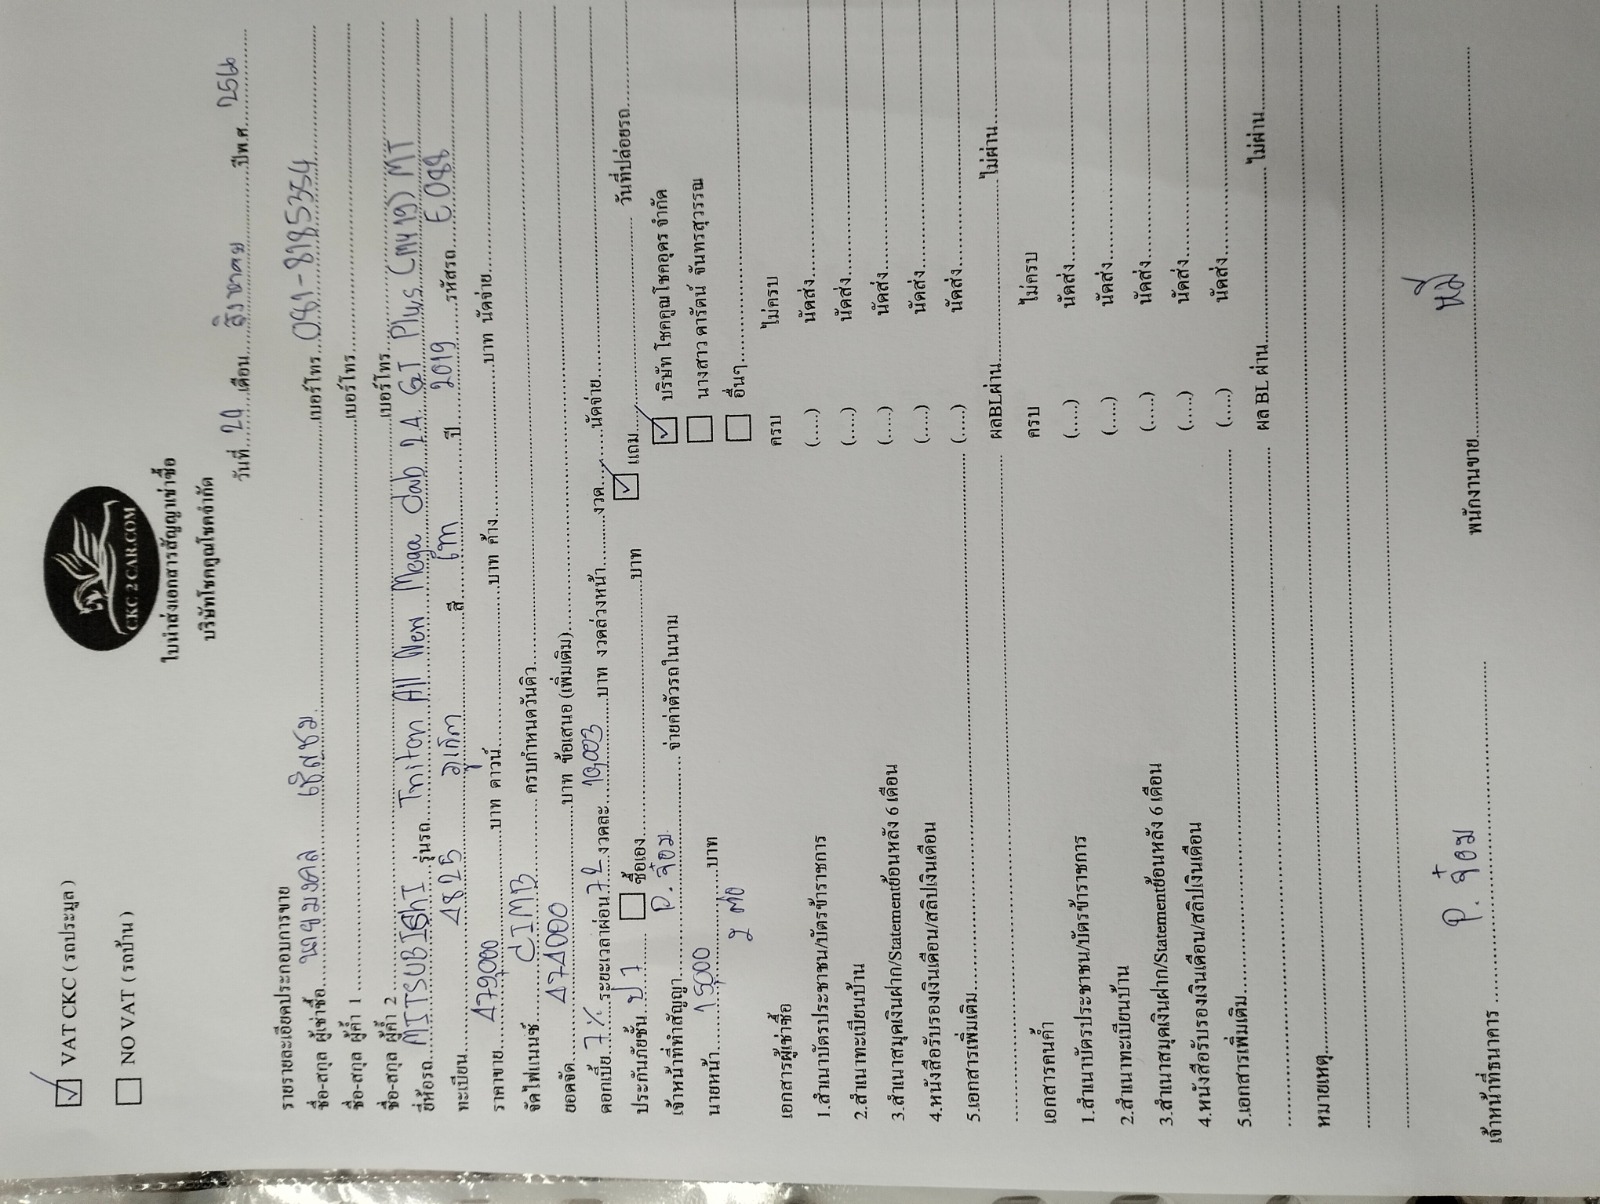 VAT CKC ( รถประมูล )
NO VAT ( รถบ้าน )
CKC 2 CAR.COM
ใบนำส่งเอกสารสัญญาเช่าซื้อ
บริษัทโชคคูณโชคจำกัด
วันที่ 29 เดือน สิงหาคม ปีพ.ศ. 2566
รายรายละเอียดประกอบการขาย
ชื่อ-สกุล ผู้เช่าซื้อ นายมงคล เชิดชม เบอร์โทร 081-8185354
ชื่อ-สกุล ผู้ค้ำ 1 เบอร์โทร
ชื่อ-สกุล ผู้ค้ำ 2 เบอร์โทร
ยี่ห้อรถ MITSUBISHI รุ่นรถ Triton All New Mega Cab 2.4 GT Plus (MY19) MT
ทะเบียน 4825 ภูเก็ต สี เทา ปี 2019 รหัสรถ E088
ราคาขาย 479,000 บาท ดาวน์ บาท ค้าง บาท นัดจ่าย
จัดไฟแนนซ์ CIMB ครบกำหนดวันคิว
ยอดจัด 474000 บาท ข้อเสนอ (เพิ่มเติม)
ดอกเบี้ย 7% ระยะเวลาผ่อน 72 งวดละ 10,003 บาท งวดล่วงหน้า งวด นัดจ่าย
ประกันภัยชั้น ป1 ซื้อเอง บาท แถม วันที่ปล่อยรถ
เจ้าหน้าที่ทำสัญญา P. จ๋อม จ่ายค่าตัวรถในนาม บริษัท โชคคูณโชคอุดร จำกัด
นายหน้า 15,000 บาท นางสาว ดารัตน์ จันทรสุวรรณ
2 ต่อ อื่นๆ
เอกสารผู้เช่าซื้อ ครบ ไม่ครบ
1.สำเนาบัตรประชาชน/บัตรข้าราชการ (.....) นัดส่ง
2.สำเนาทะเบียนบ้าน (.....) นัดส่ง
3.สำเนาสมุดเงินฝาก/Statementย้อนหลัง 6 เดือน (.....) นัดส่ง
4.หนังสือรับรองเงินเดือน/สลิปเงินเดือน (.....) นัดส่ง
5.เอกสารเพิ่มเติม (.....) นัดส่ง
ผลBLผ่าน ไม่ผ่าน
เอกสารคนค้ำ ครบ ไม่ครบ
1.สำเนาบัตรประชาชน/บัตรข้าราชการ (.....) นัดส่ง
2.สำเนาทะเบียนบ้าน (.....) นัดส่ง
3.สำเนาสมุดเงินฝาก/Statementย้อนหลัง 6 เดือน (.....) นัดส่ง
4.หนังสือรับรองเงินเดือน/สลิปเงินเดือน (.....) นัดส่ง
5.เอกสารเพิ่มเติม (.....) นัดส่ง
ผล BL ผ่าน ไม่ผ่าน
หมายเหตุ
เจ้าหน้าที่ธนาคาร P. จ๋อม พนักงานขาย